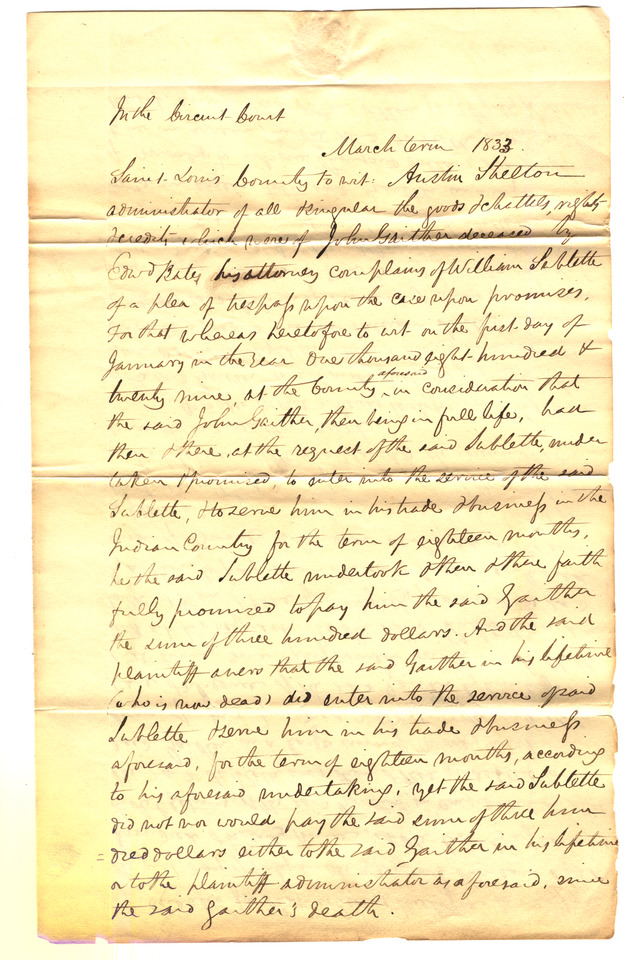 In the Circuit Court
March term 1833.
Saint Louis County to wit: Austin Shelton
administrator of all & singular the goods & chattels, rights
& credits which were of John Gaither deceased by
Edwd Bates his attorney complains of William Sublette
of a plea of trespass upon the case upon promises.
For that whereas heretofore to wit on the first day of
January in the year One thousand eight hundred &
twenty nine, at the County aforesaid, in consideration that
the said John Gaither, then being in full life, had
then & there, at the request of the said Sublette, under
taken & promised, to enter into the service of the said
Sublette, & to serve him in his trade & business in the
Indian Country for the term of eighteen months,
he the said Sublette undertook & then & there faith
fully promised to pay him the said Gaither
the sum of three hundred dollars. And the said
plaintiff avers that the said Gaither in his lifetime
(who is now dead) did enter into the service of said
Sublette & serve him in his trade & business
aforesaid, for the term of eighteen months, according
to his aforesaid undertaking, yet the said Sublette
did not nor would pay the said sum of three hun
=dred dollars either to the said Gaither in his lifetime
or to the plaintiff administrator as aforesaid, since
the said Gaither's death.